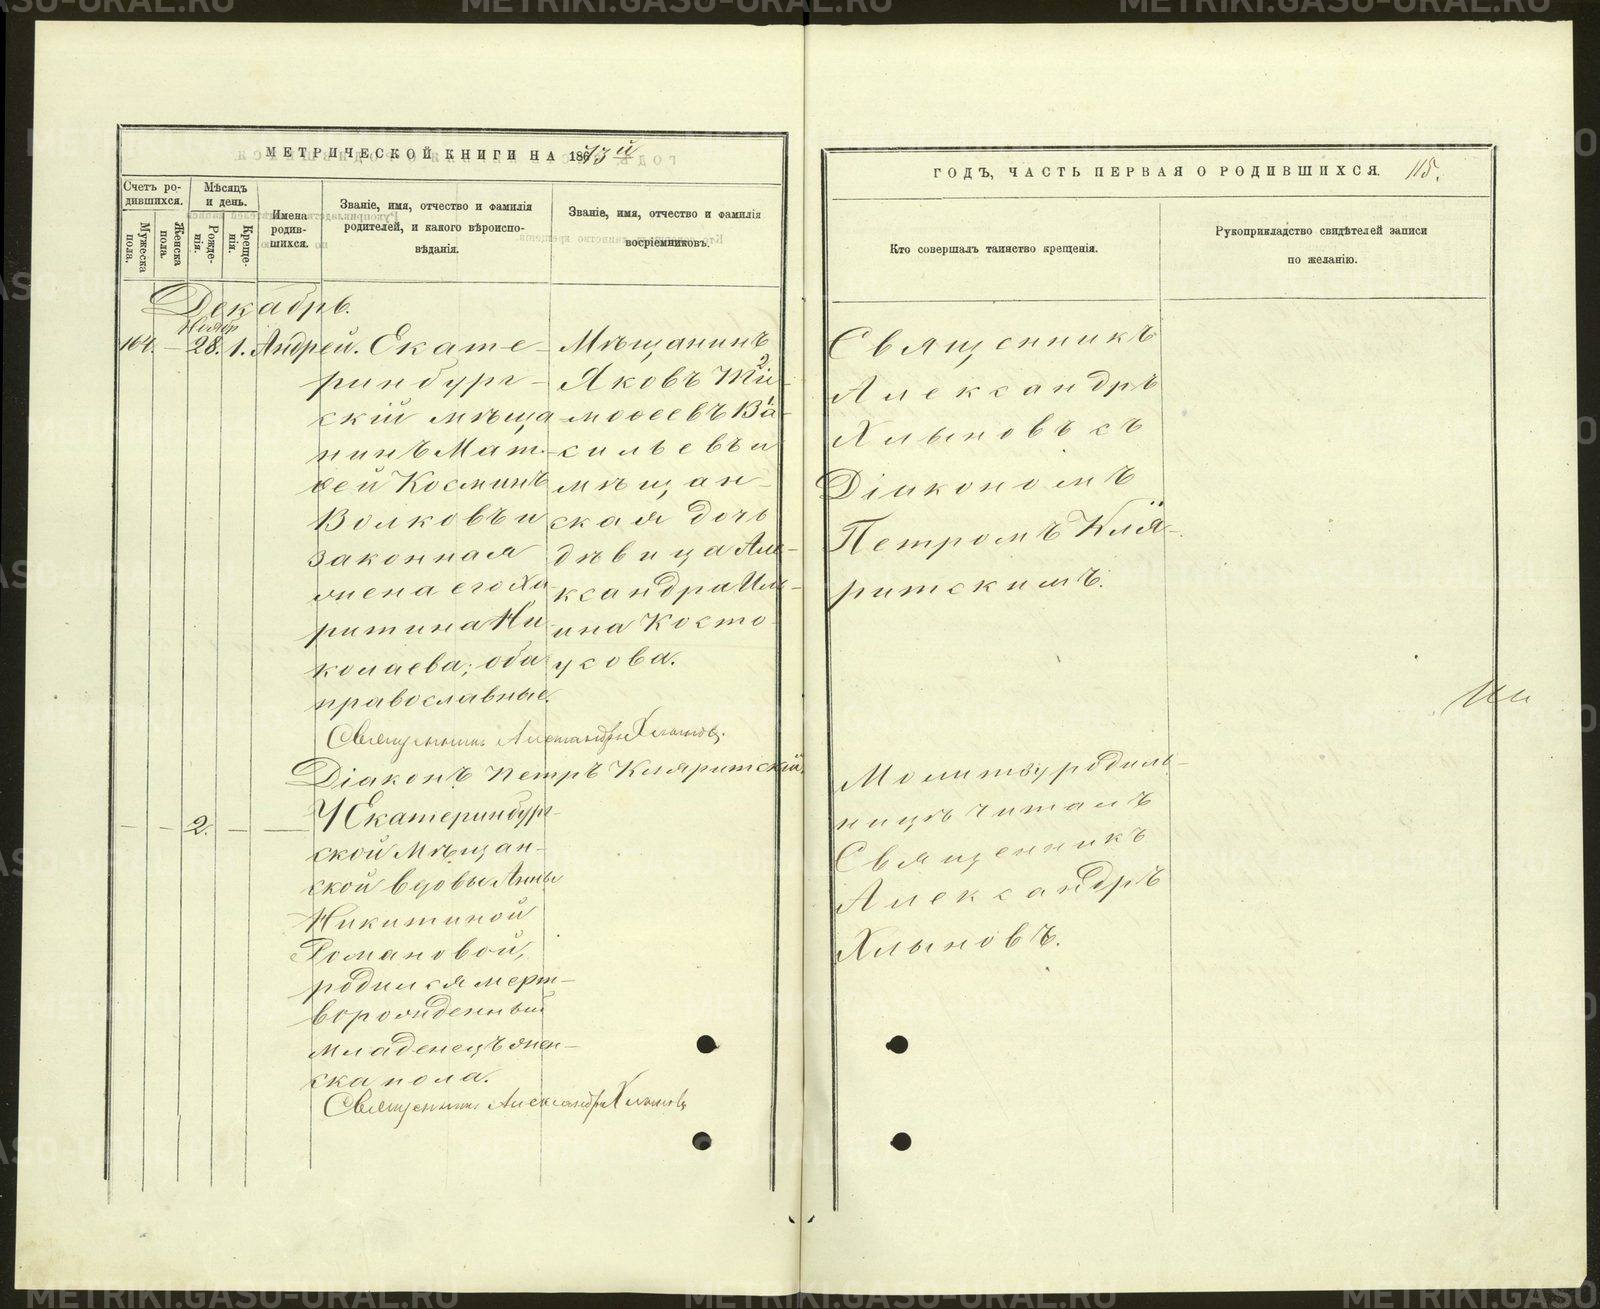 МЕТРИЧЕСКОЙ КНИГИ НА 1873й
Счетъ ро-
дившихся.
Мужеска
пола.
Женска
пола.
Мѣсяцъ
и день.
Рожде-
нія.
Креще-
нія.
Имена
родив-
шихся.
Званіе, имя, отчество и фамилія
родителей, и какого вѣроиспо-
вѣданія.
Званіе, имя, отчество и фамилія
воспріемниковъ.
Декабрь.
Ноябр
164. — 28. 1. Андрей.
Екате-
ринбург-
скій мѣща
нинъ Мат-
ѳей Косминъ
Волковъ и
законная
жена его Ха
ритина Ни
колаева; оба
православные.
Мѣщанинъ
Яковъ Ти-
моѳеевъ Ва-
сильевъ и
мѣщан-
ская дочь
дѣвица Але-
ксандра Иль-
ина Косто-
усова.
Священникъ Александръ Хлыновъ.
Діаконъ Петръ Кляритскій.
— — 2. — —
У Екатеринбург-
ской Мѣщан-
ской вдовы Анны
Никитиной
Романовой,
родился мерт-
ворожденный
младенецъ жен-
ска пола.
Священникъ Александръ Хлыновъ
ГОДЪ, ЧАСТЬ ПЕРВАЯ О РОДИВШИХСЯ. 115.
Кто совершалъ таинство крещенія.
Рукоприкладство свидѣтелей записи
по желанію.
Священникъ
Александръ
Хлыновъ съ
Діакономъ
Петромъ Кля-
ритскимъ.
Молитву родиль-
ницѣ читалъ
Священникъ
Александръ
Хлыновъ.
METRIKI.GASO-URAL.RU